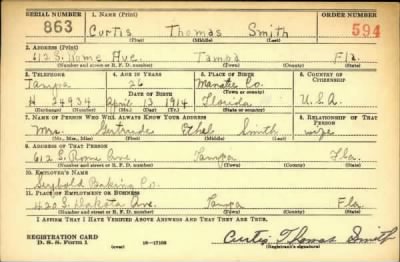 SERIAL NUMBER 1. NAME (Print) ORDER NUMBER
863 Curtis Thomas Smith 594
(First) (Middle) (Last)
2. ADDRESS (Print)
612 S. Rome Ave. Tampa Fla.
(Number and street or R. F. D. number) (Town) (County) (State)
3. TELEPHONE 4. AGE IN YEARS 5. PLACE OF BIRTH 6. COUNTRY OF CITIZENSHIP
Tampa 26 Manatee Co.
DATE OF BIRTH (Town or county)
H 34934 April 13 1914 Florida U.S.A.
(Exchange) (Number) (Mo.) (Day) (Yr.) (State or country)
7. NAME OF PERSON WHO WILL ALWAYS KNOW YOUR ADDRESS 8. RELATIONSHIP OF THAT PERSON
Mrs. Gertrude Ethel Smith wife
(Mr., Mrs., Miss) (First) (Middle) (Last)
9. ADDRESS OF THAT PERSON
612 S. Rome Ave. Tampa Fla
(Number and street or R. F. D. number) (Town) (County) (State)
10. EMPLOYER'S NAME
Seybold Baking Co.
11. PLACE OF EMPLOYMENT OR BUSINESS
420 S. Dakota Ave. Tampa Fla
(Number and street or R. F. D. number) (Town) (County) (State)
I AFFIRM THAT I HAVE VERIFIED ABOVE ANSWERS AND THAT THEY ARE TRUE.
REGISTRATION CARD
D. S. S. Form 1 (over) 16—17105 Curtis Thomas Smith
(Registrant's signature)